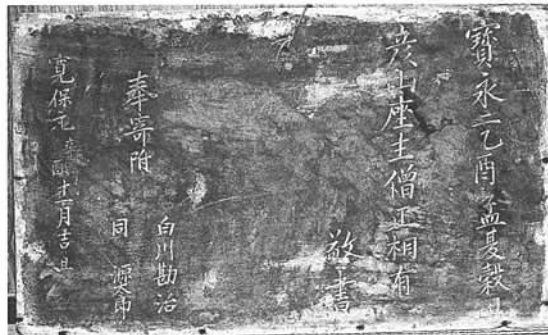 寳永二乙酉孟夏穀日
彦山座主僧正相有
敬書
奉寄附
白川勘治
同 源太郎
寛保元辛酉十一月吉旦